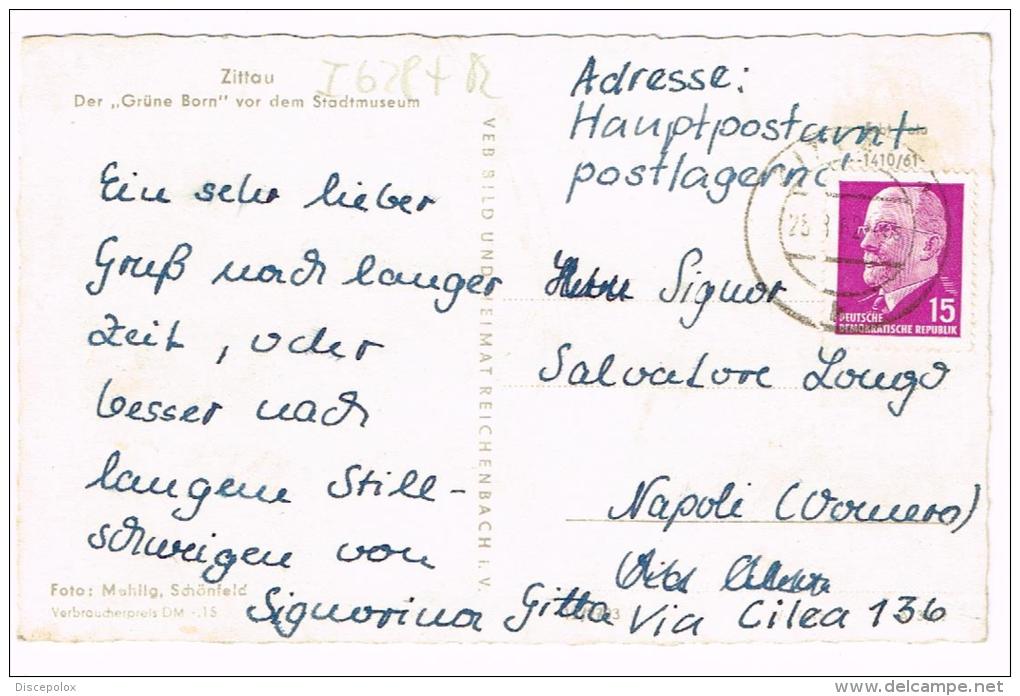 Zittau
Der „Grüne Born" vor dem Stadtmuseum
Ein sehr lieber
Gruß nach langer
Zeit, oder
besser nach
langem Still-
schweigen von
Signorina Gitta
Foto: Mahlig, Schönfeld
Verbraucherpreis DM -.15
VEB BILD UND HEIMAT REICHENBACH i. V.
Adresse:
Hauptpostamt
postlagernd
-1410/61-
15
DEUTSCHE
DEMOKRATISCHE REPUBLIK
Signor
Salvatore Longo
Napoli (Vomero)
Via Cilea 136
Discepolox
www.delcampe.net